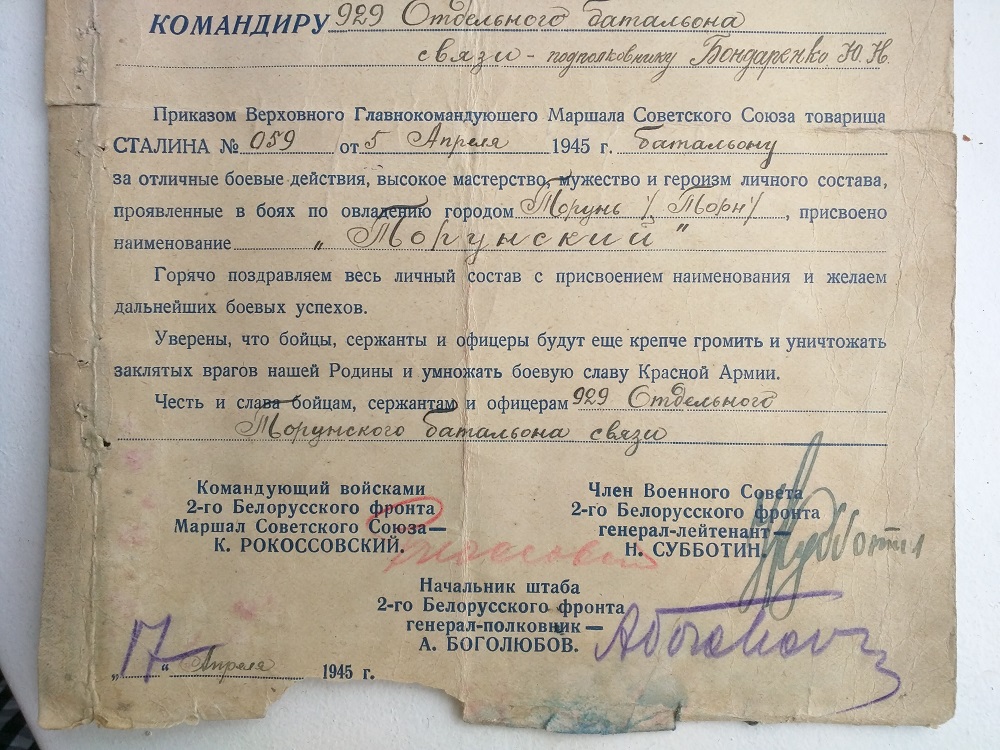 КОМАНДИРУ 929 Отдельного батальона
связи - подполковнику Бондаренко Ю. Н.
Приказом Верховного Главнокомандующего Маршала Советского Союза товарища
СТАЛИНА № 059 от 5 Апреля 1945 г. батальону
за отличные боевые действия, высокое мастерство, мужество и героизм личного состава,
проявленные в боях по овладению городом Торунь /Торн/, присвоено
наименование „Торунский"
Горячо поздравляем весь личный состав с присвоением наименования и желаем
дальнейших боевых успехов.
Уверены, что бойцы, сержанты и офицеры будут еще крепче громить и уничтожать
заклятых врагов нашей Родины и умножать боевую славу Красной Армии.
Честь и слава бойцам, сержантам и офицерам 929 Отдельного
Торунского батальона связи
Командующий войсками
2-го Белорусского фронта
Маршал Советского Союза—
К. РОКОССОВСКИЙ.
Член Военного Совета
2-го Белорусского фронта
генерал-лейтенант—
Н. СУББОТИН.
Субботин
Начальник штаба
2-го Белорусского фронта
генерал-полковник—
А. БОГОЛЮБОВ.
„17“ Апреля 1945 г.